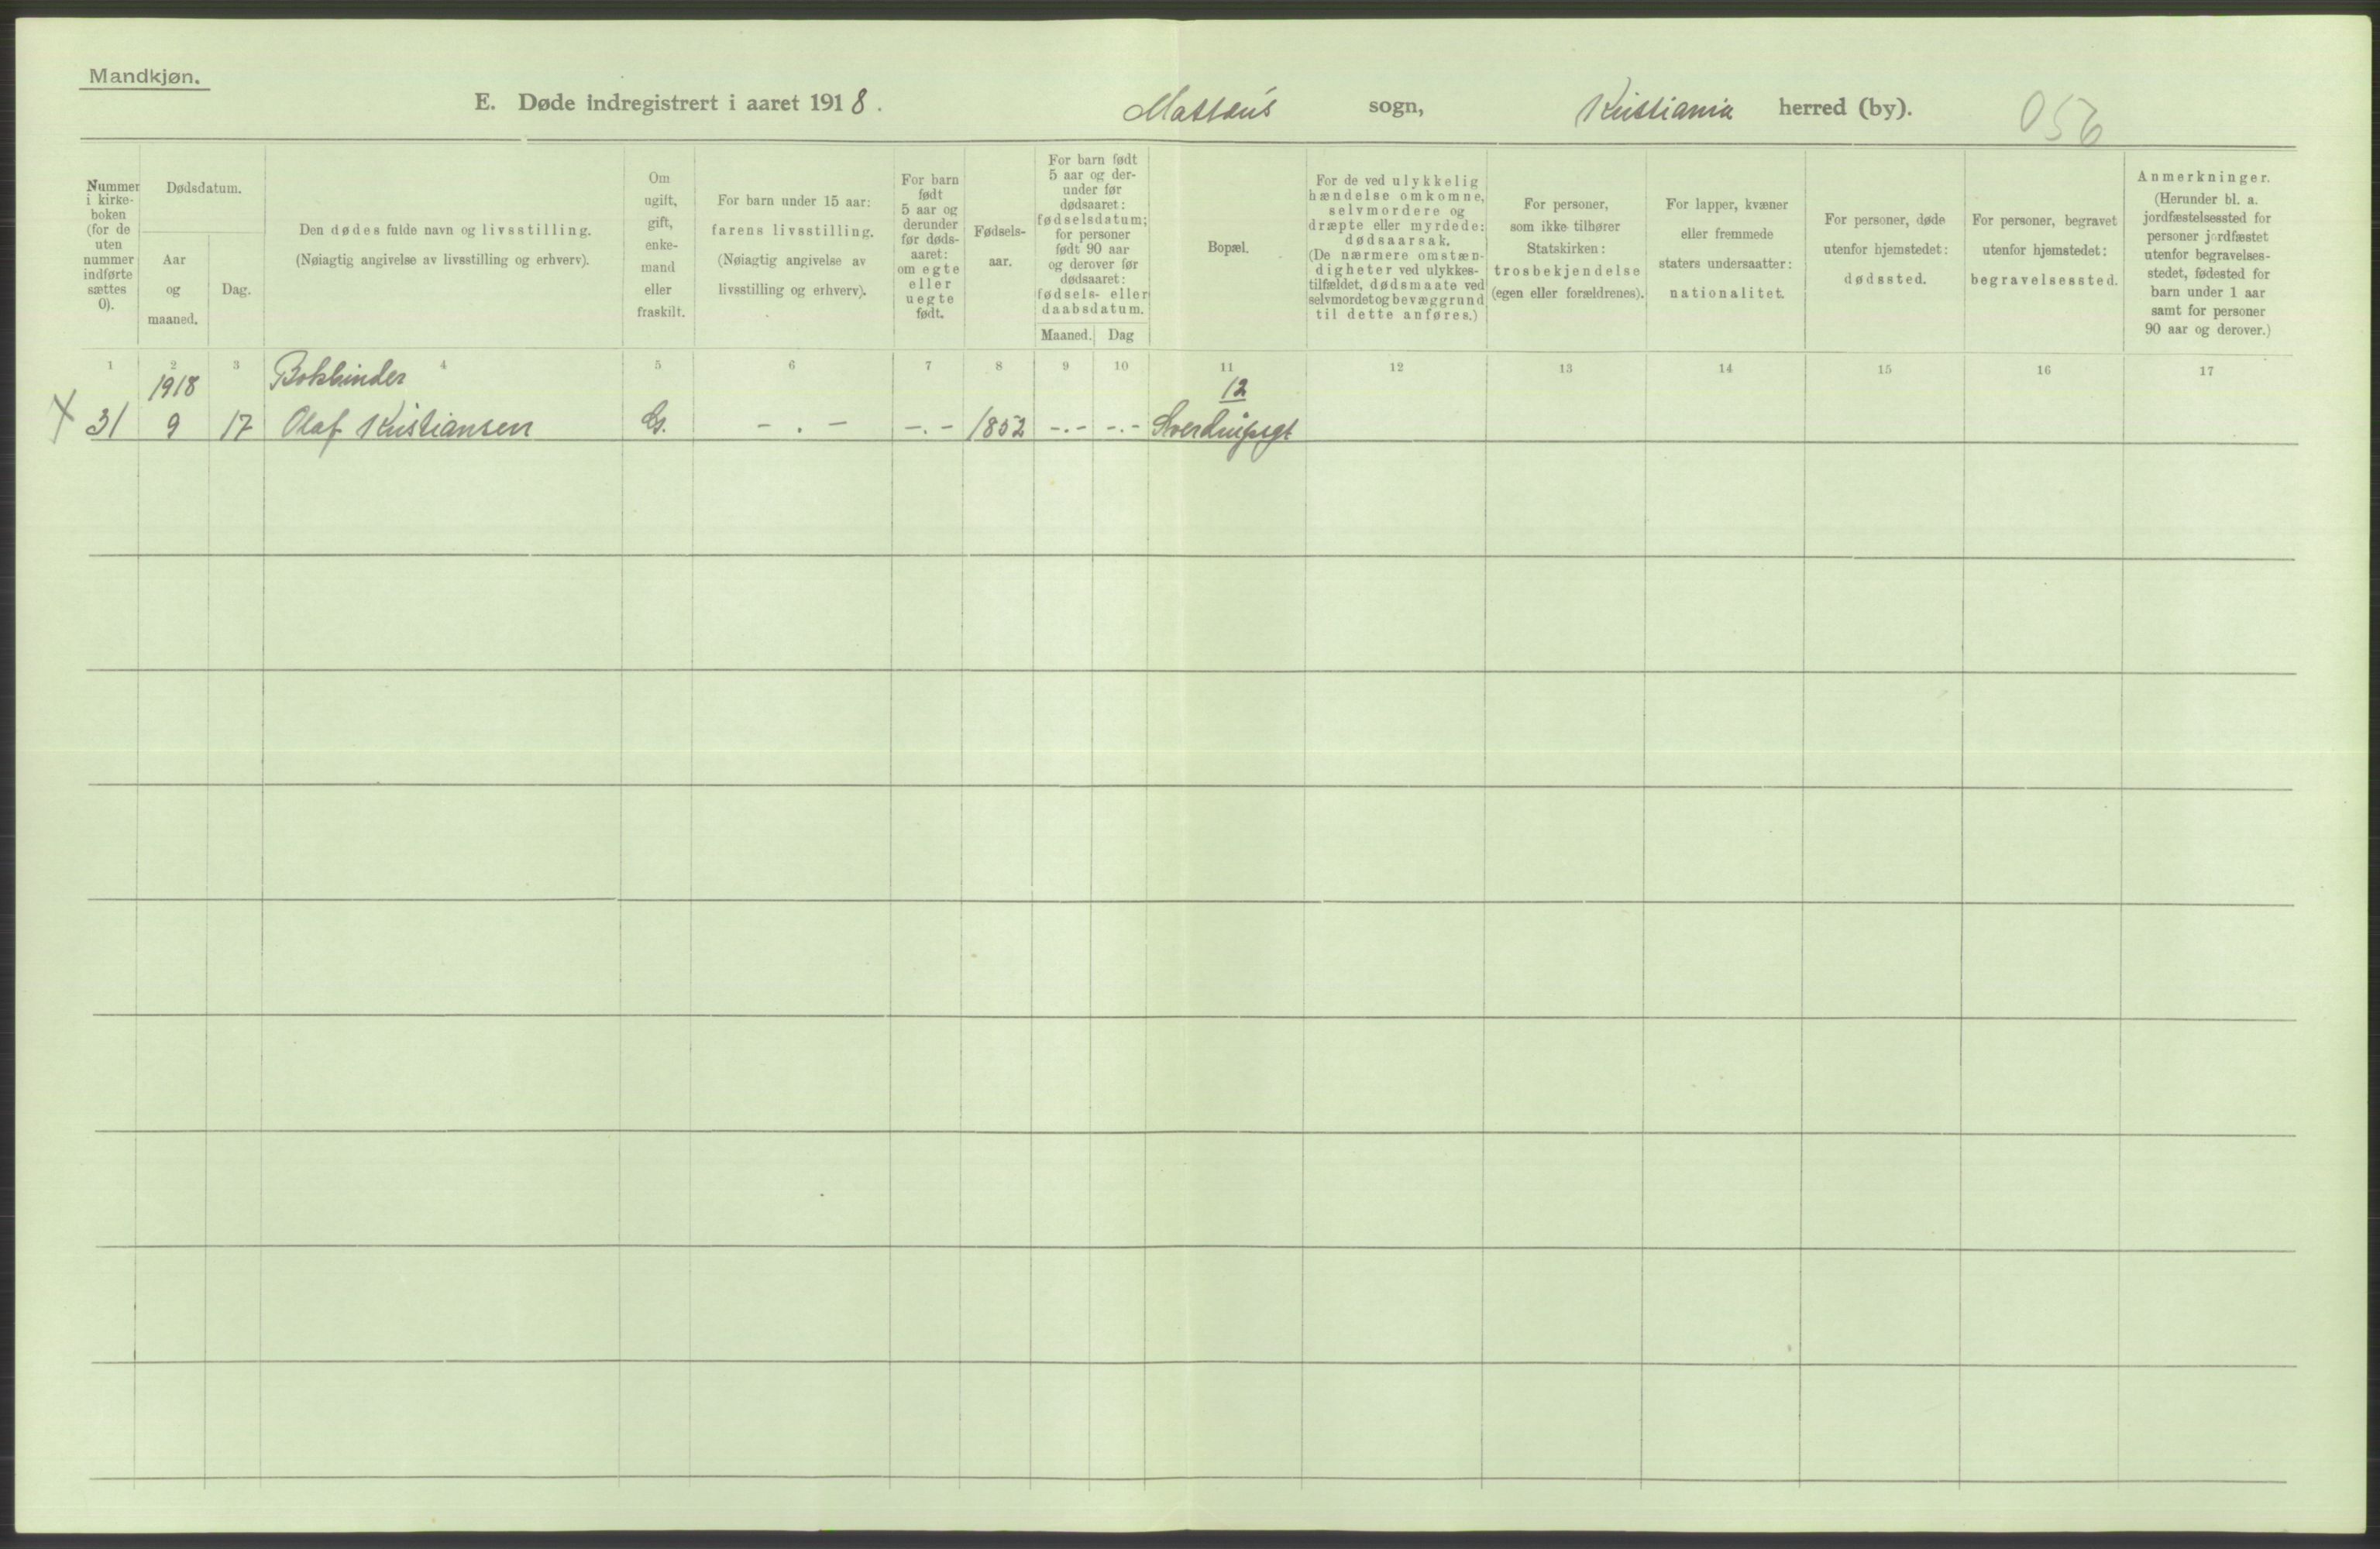 Mandkjøn.
E. Døde indregistrert i aaret 1918. Mattæus sogn, Kristiania herred (by). 056
Nummer
i kirke-
boken
(for de
uten
nummer
indførte
sættes
0).
Dødsdatum.
Aar
og
maaned.
Dag.
Den dødes fulde navn og livsstilling.
(Nøiagtig angivelse av livsstilling og erhverv).
Om
ugift,
gift,
enke-
mand
eller
fraskilt.
For barn under 15 aar:
farens livsstilling.
(Nøiagtig angivelse av
livsstilling og erhverv).
For barn
født
5 aar og
derunder
før døds-
aaret:
om egte
eller
uegte
født.
Fødsels-
aar.
For barn født
5 aar og der-
under før
dødsaaret:
fødselsdatum;
for personer
født 90 aar
og derover før
dødsaaret:
fødsels- eller
daabsdatum.
Maaned. Dag
Bopæl.
For de ved ulykkelig
hændelse omkomne,
selvmordere og
dræpte eller myrdede:
dødsaarsak.
(De nærmere omstæn-
digheter ved ulykkes-
tilfældet, dødsmaate ved
selvmordet og bevæggrund
til dette anføres.)
For personer,
som ikke tilhører
Statskirken:
trosbekjendelse
(egen eller forældrenes).
For lapper, kvæner
eller fremmede
staters undersaatter:
nationalitet.
For personer, døde
utenfor hjemstedet:
dødssted.
For personer, begravet
utenfor hjemstedet:
begravelsessted.
Anmerkninger.
(Herunder bl. a.
jordfæstelsessted for
personer jordfæstet
utenfor begravelses-
stedet, fødested for
barn under 1 aar
samt for personer
90 aar og derover.)
1 2 3 4 5 6 7 8 9 10 11 12 13 14 15 16 17
1918 Bokbinder 12
X 31 9 17 Olaf Kristiansen G. - . - -.- 1852 -.- -.- Sverdrupsgt